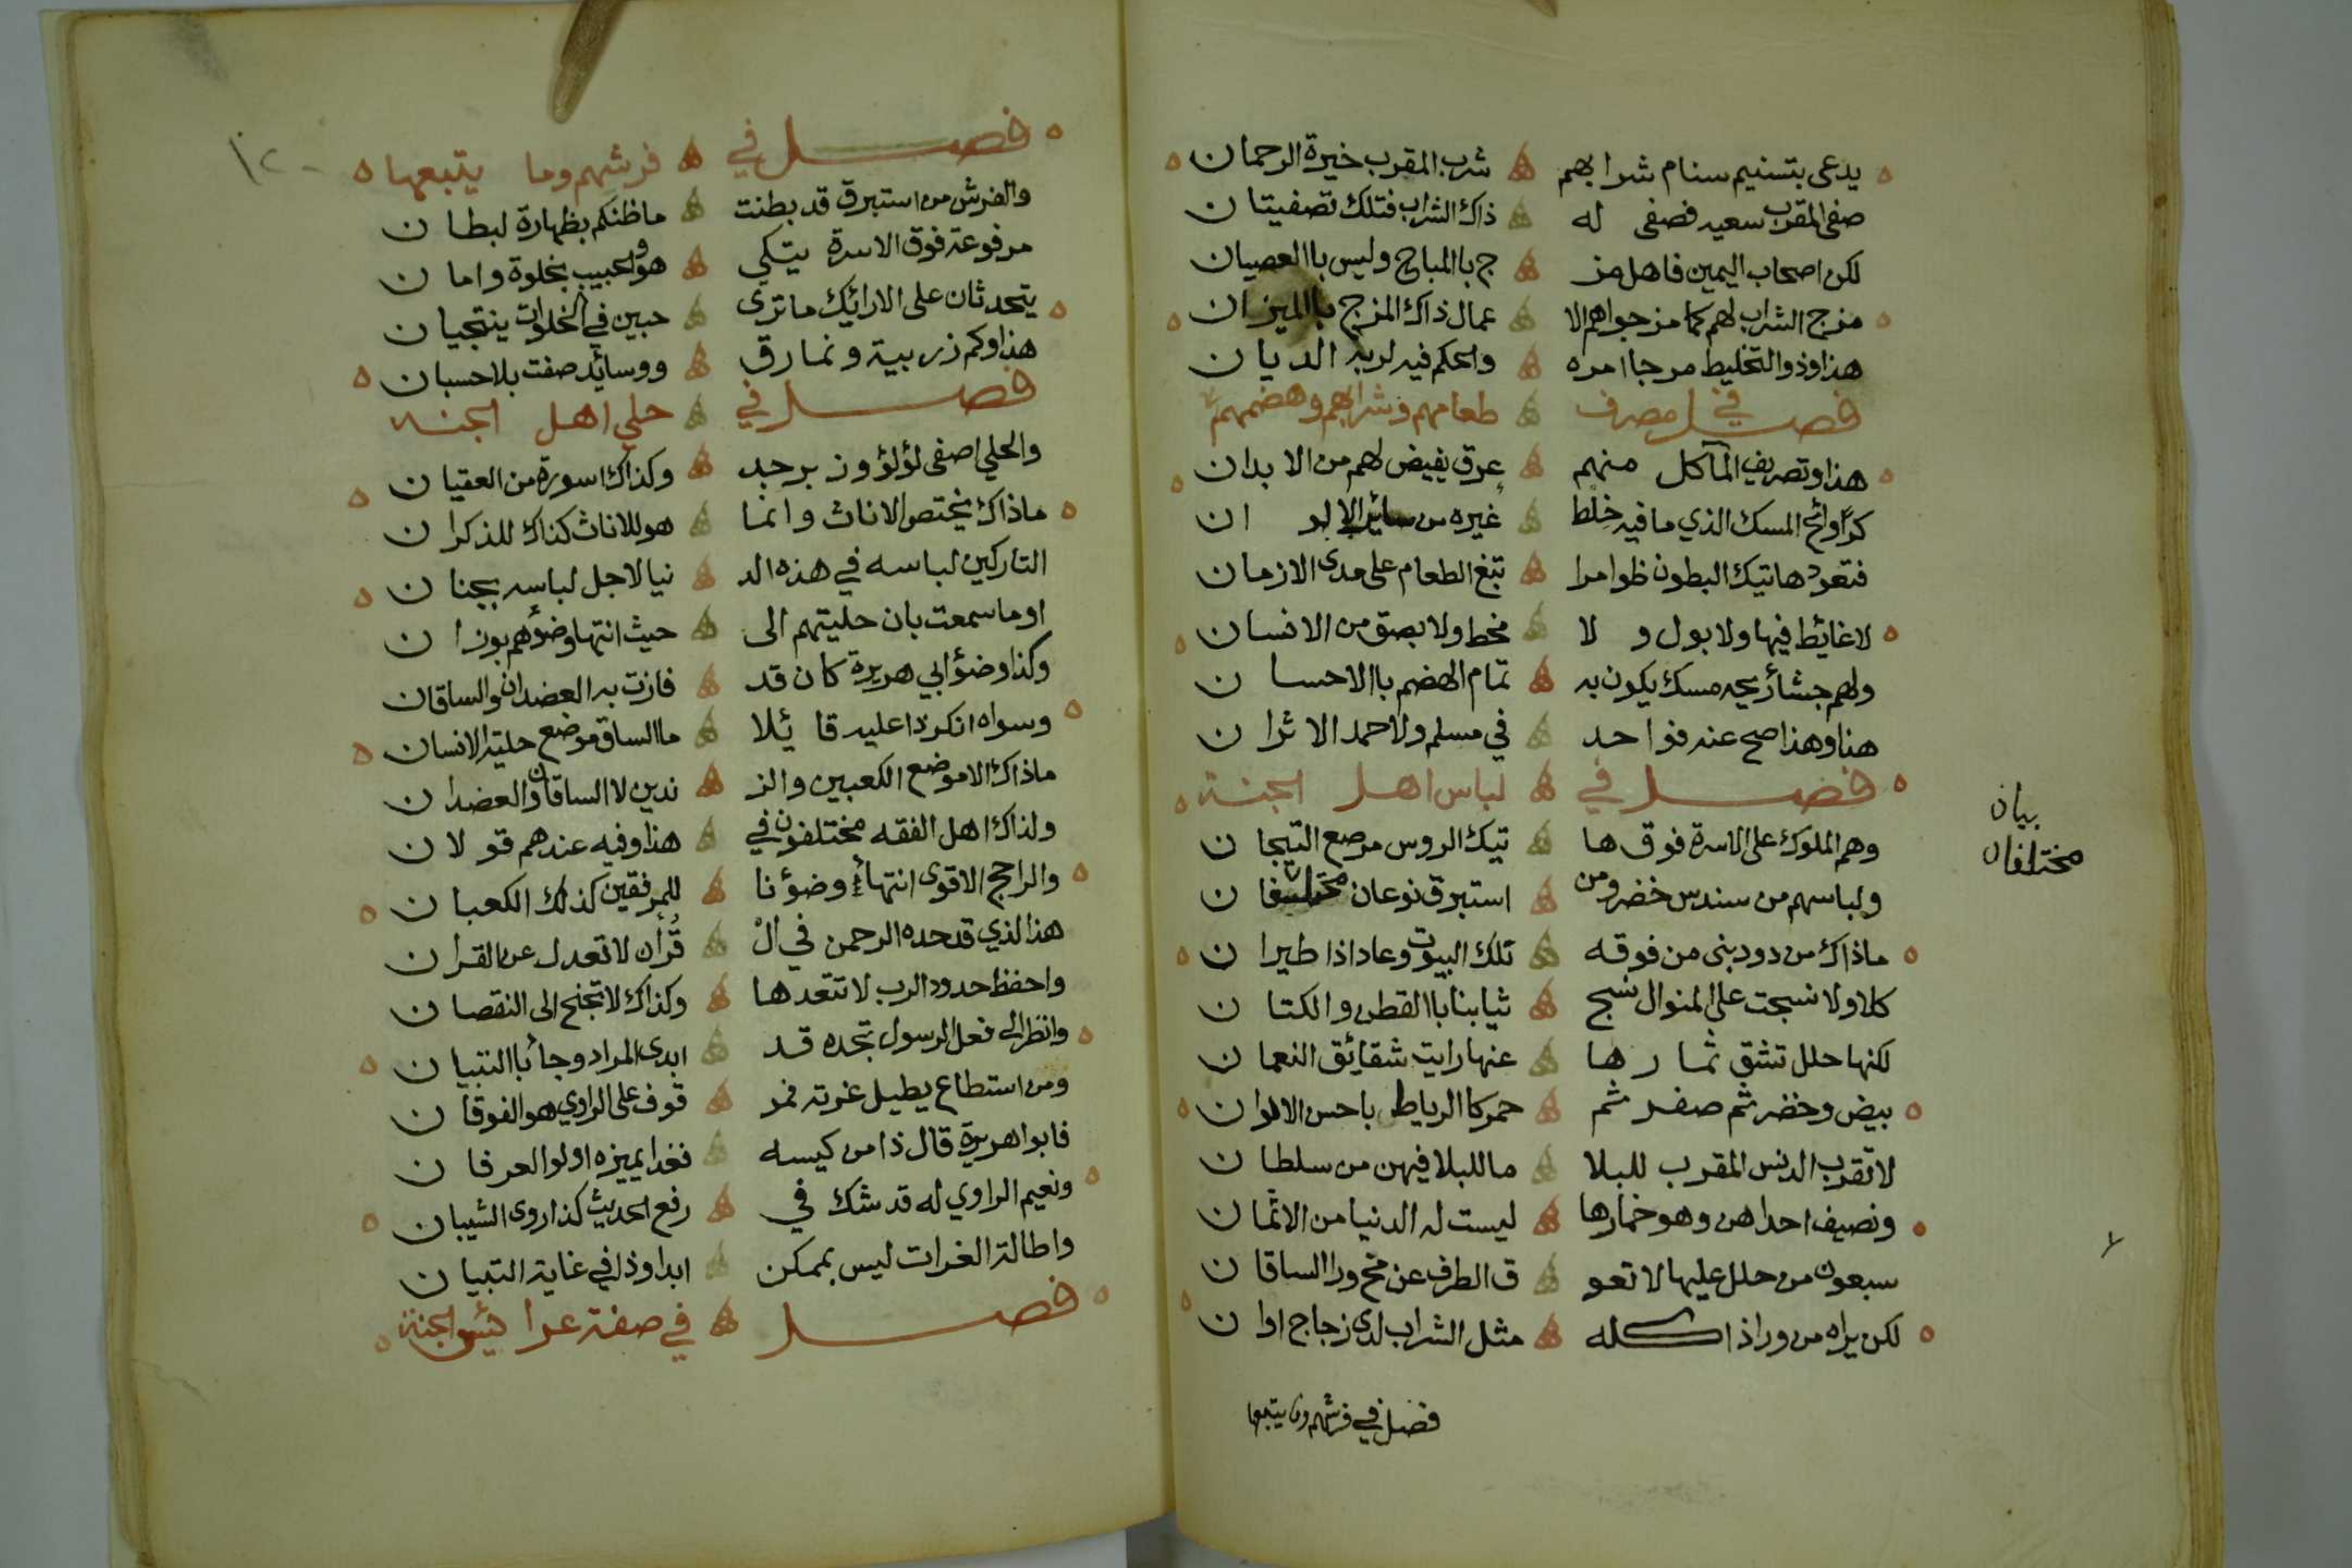 يدعى بتسنيم سنام شرابهم شرب المقرب خيرة الرحمان
صفى المقرب سعيه فصفى له ذاك الشراب فتلك تصفيتان
لكن اصحاب اليمين فاهل مز ج باالمباح وليس باالعصيان
مزج الشراب لهم كما مزجوا هم الا عمال ذاك المزج باالميزان
هذا وذو التخليط مرجا امره والحكم فيه لربه الديان
فصل في مصرف طعامهم وشرابهم وهضمهم
هذا وتصريف المآكل منهم عرق يفيض لهم من الابدان
كروائح المسك الذي ما فيه خلط غيره من سائر الالوان
فتعود هاتيك البطون ظوامرا تبغ الطعام على مدى الازمان
لا غايط فيها ولا بول ولا مخط ولا بصق من الانسان
ولهم جشاء ريحه مسك يكون به تمام الهضم باالاحسان
هذا وهذا صح عنه فواحد في مسلم ولاحمد الاثران
فصل في لباس اهل الجنة
وهم الملوك على الاسرة فوق ها تيك الروس مرصع التيجان
ولباسهم من سندس خضر ومن استبرق نوعان مختلفان
ماذاك من دود بنى من فوقه تلك البيوت وعاد اذا طيران
كلا ولا نسجت على المنوال نسج ثيابنا باالقطن والكتان
لكنها حلل تشق ثمارها عنها رايت شقائق النعمان
بيض وخضر ثم صفر ثم حمر كا الرياط باحسن الالوان
لا تقرب الدنس المقرب للبلا ما للبلا فيهن من سلطان
ونصيف احداهن وهو خمارها ليست له الدنيا من الاثمان
سبعون من حلل عليها لا تعو ق الطرف عن مخ ورا الساقان
لكن يراه من ورا ذا كله مثل الشراب لدى زجاج اوان
فصل في فرشهم وما يتبعها
بيان
مختلفان
١٢٠
فصل في فرشهم وما يتبعها
والفرش من استبرق قد بطنت ماظنكم بظهارة لبطان
مرفوعة فوق الاسرة يتكي هو والحبيب بخلوة وامان
يتحدثان على الارائك ماترى حبين في الخلوات ينتجيان
هذا وكم زربية ونمارق ووسائد صفت بلا حسبان
فصل في حلي اهل الجنه
والحلي اصفى لؤلؤ وزبرجد وكذاك اسورة من العقيان
ماذاك يختص الاناث وانما هو للاناث كذاك للذكران
التاركين لباسه في هذه الد نيا لاجل لباسه بجنان
اوما سمعت بان حليتهم الى حيث انتها وضوءهم بوزان
وكذا وضؤ ابي هريرة كان قد فازت به العضدان والساقان
وسواه انكر ذا عليه قائلا ما الساق موضع حلية الانسان
ماذاك الا موضع الكعبين والز ندين لا الساقان والعضدان
ولذاك اهل الفقه مختلفون في هذا وفيه عندهم قولان
والراجح الاقوى انتهاء وضؤنا للمرفقين كذلك الكعبان
هذا الذي قد حده الرحمن في ال قرأن لا تعدل عن القران
واحفظ حدود الرب لا تتعدها وكذاك لا تجنح الى النقصان
وانظر الى فعل الرسول تجده قد ابدى المراد وجاء باالتبيان
ومن استطاع يطيل غرته فمو قوف على الراوي هو الفوقان
فابوا هريرة قال ذا من كيسه فغدا يميزه اولوا العرفان
ونعيم الراوي له قد شك في رفع الحديث كذا روى الشيبان
واطالة الغرات ليس بممكن ابدا وذا في غاية التبيان
فصل في صفة عرائس الجنة